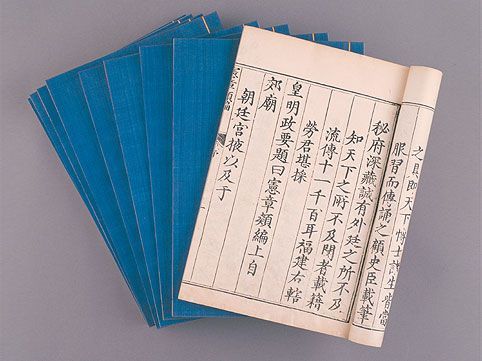 之具即天下博士諸生皆當
服習而傳誦之顧史臣載筆
秘府深藏誠有外廷之所不及
知天下之所不及聞者載籍
流傳十一千百耳福建右轄
勞君堪採
皇明政要題曰憲章類編上自
郊廟
朝廷宮掖以及于